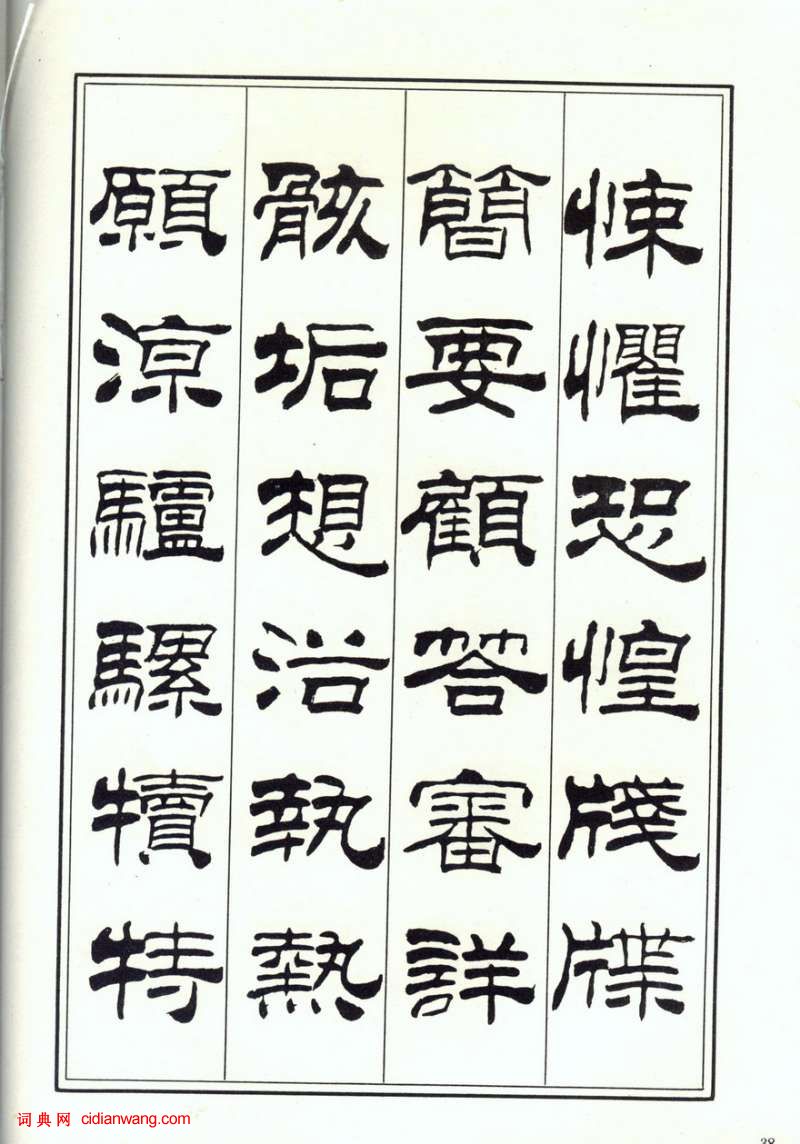 悚懼恐惶牋牒
簡要顧答審詳
骸垢想浴執熱
願涼驢騾犢特
词典网 cidianwang.com
38